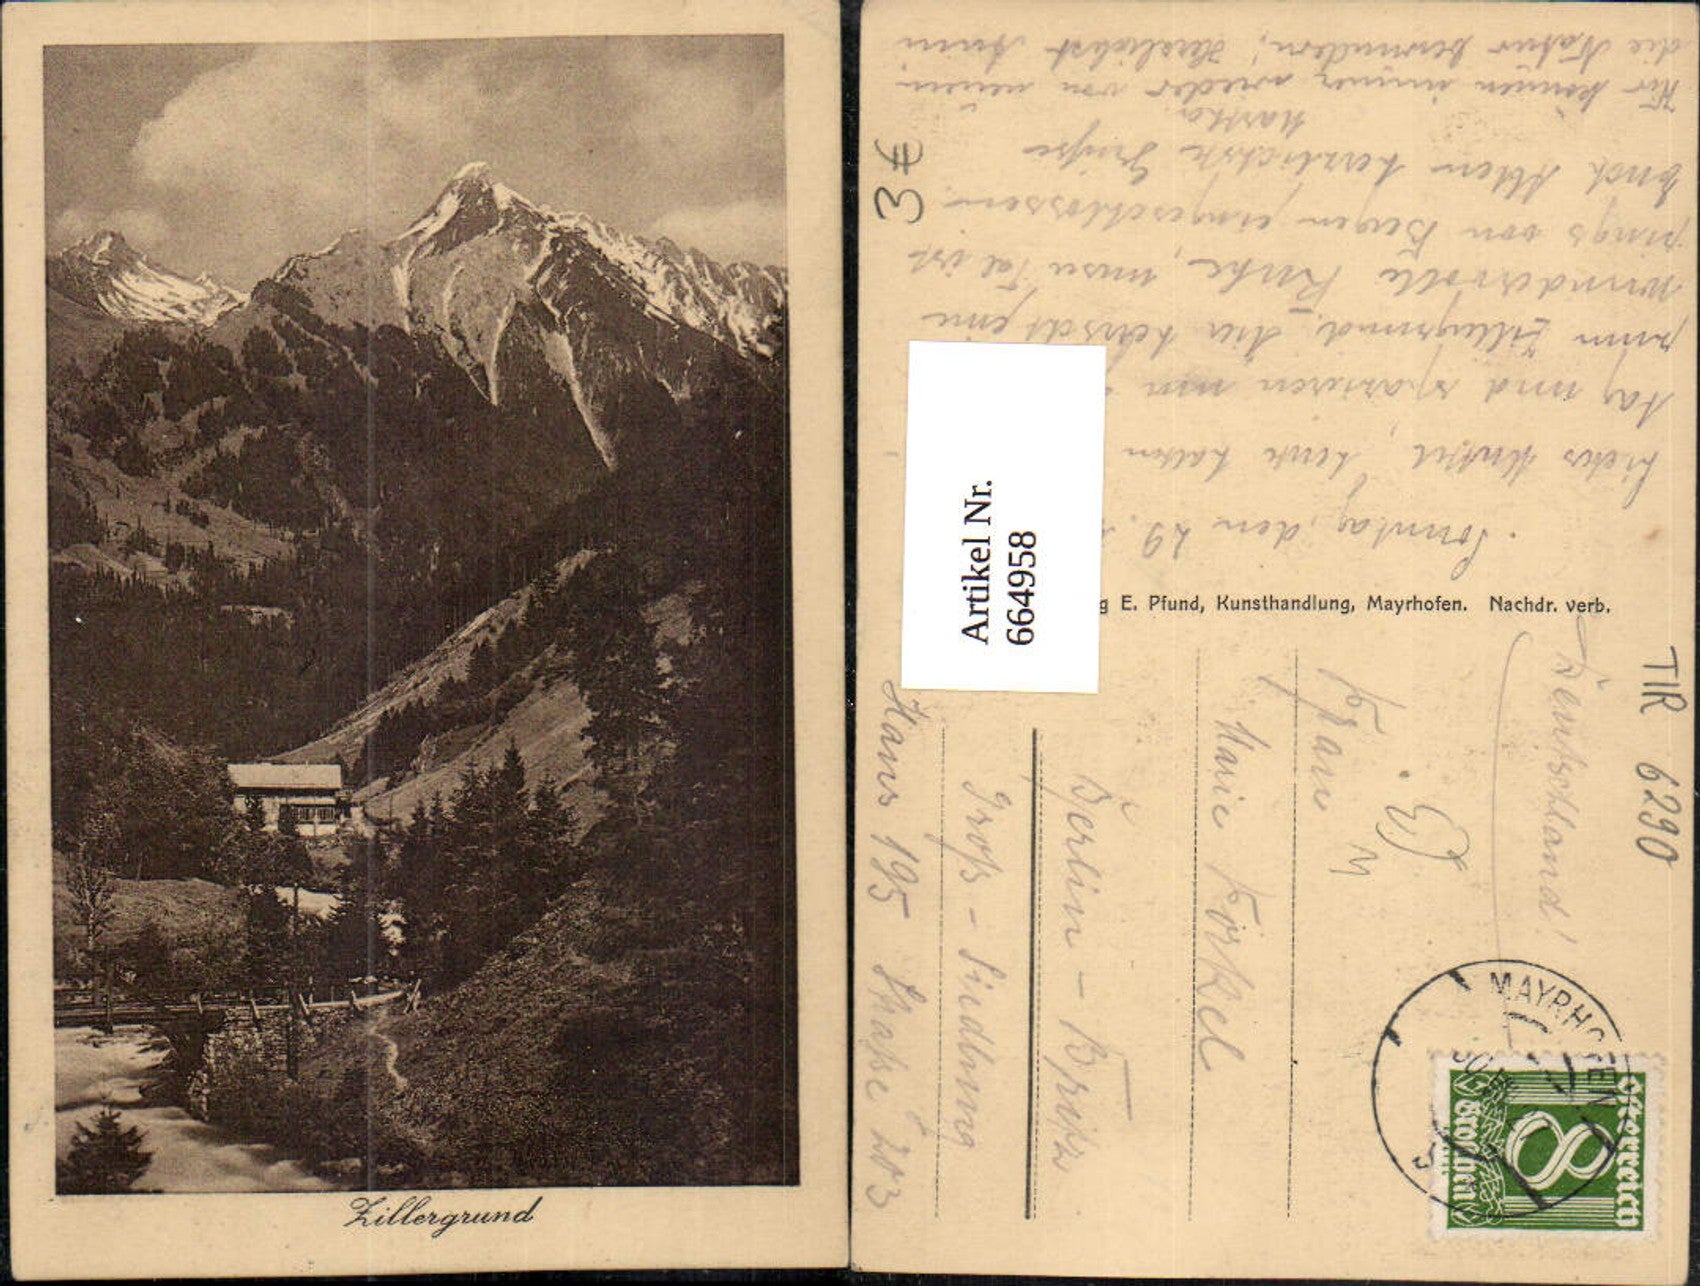 Zillergrund
3 €
Artikel Nr.
664958
Sonntag, den 29.
Liebes Muttel, heute haben
Tag und spazieren nun
zum Zillergrund. Hier herrscht eine
wundervolle Ruhe, unser Tal ist
rings von Bergen eingeschlossen
Euch Allen herzlichste Grüße
Martha
Wir können immer wieder von neuem
die Natur bewundern; Herzlichst
g E. Pfund, Kunsthandlung, Mayrhofen. Nachdr. verb.
TIR 6290
Deutschland!
Frau
Marie Förkel
Berlin - Britz
Groß - Siedlung
Haus 195 Straße 203
MAYRHOFEN
Österreich
8
Groschen